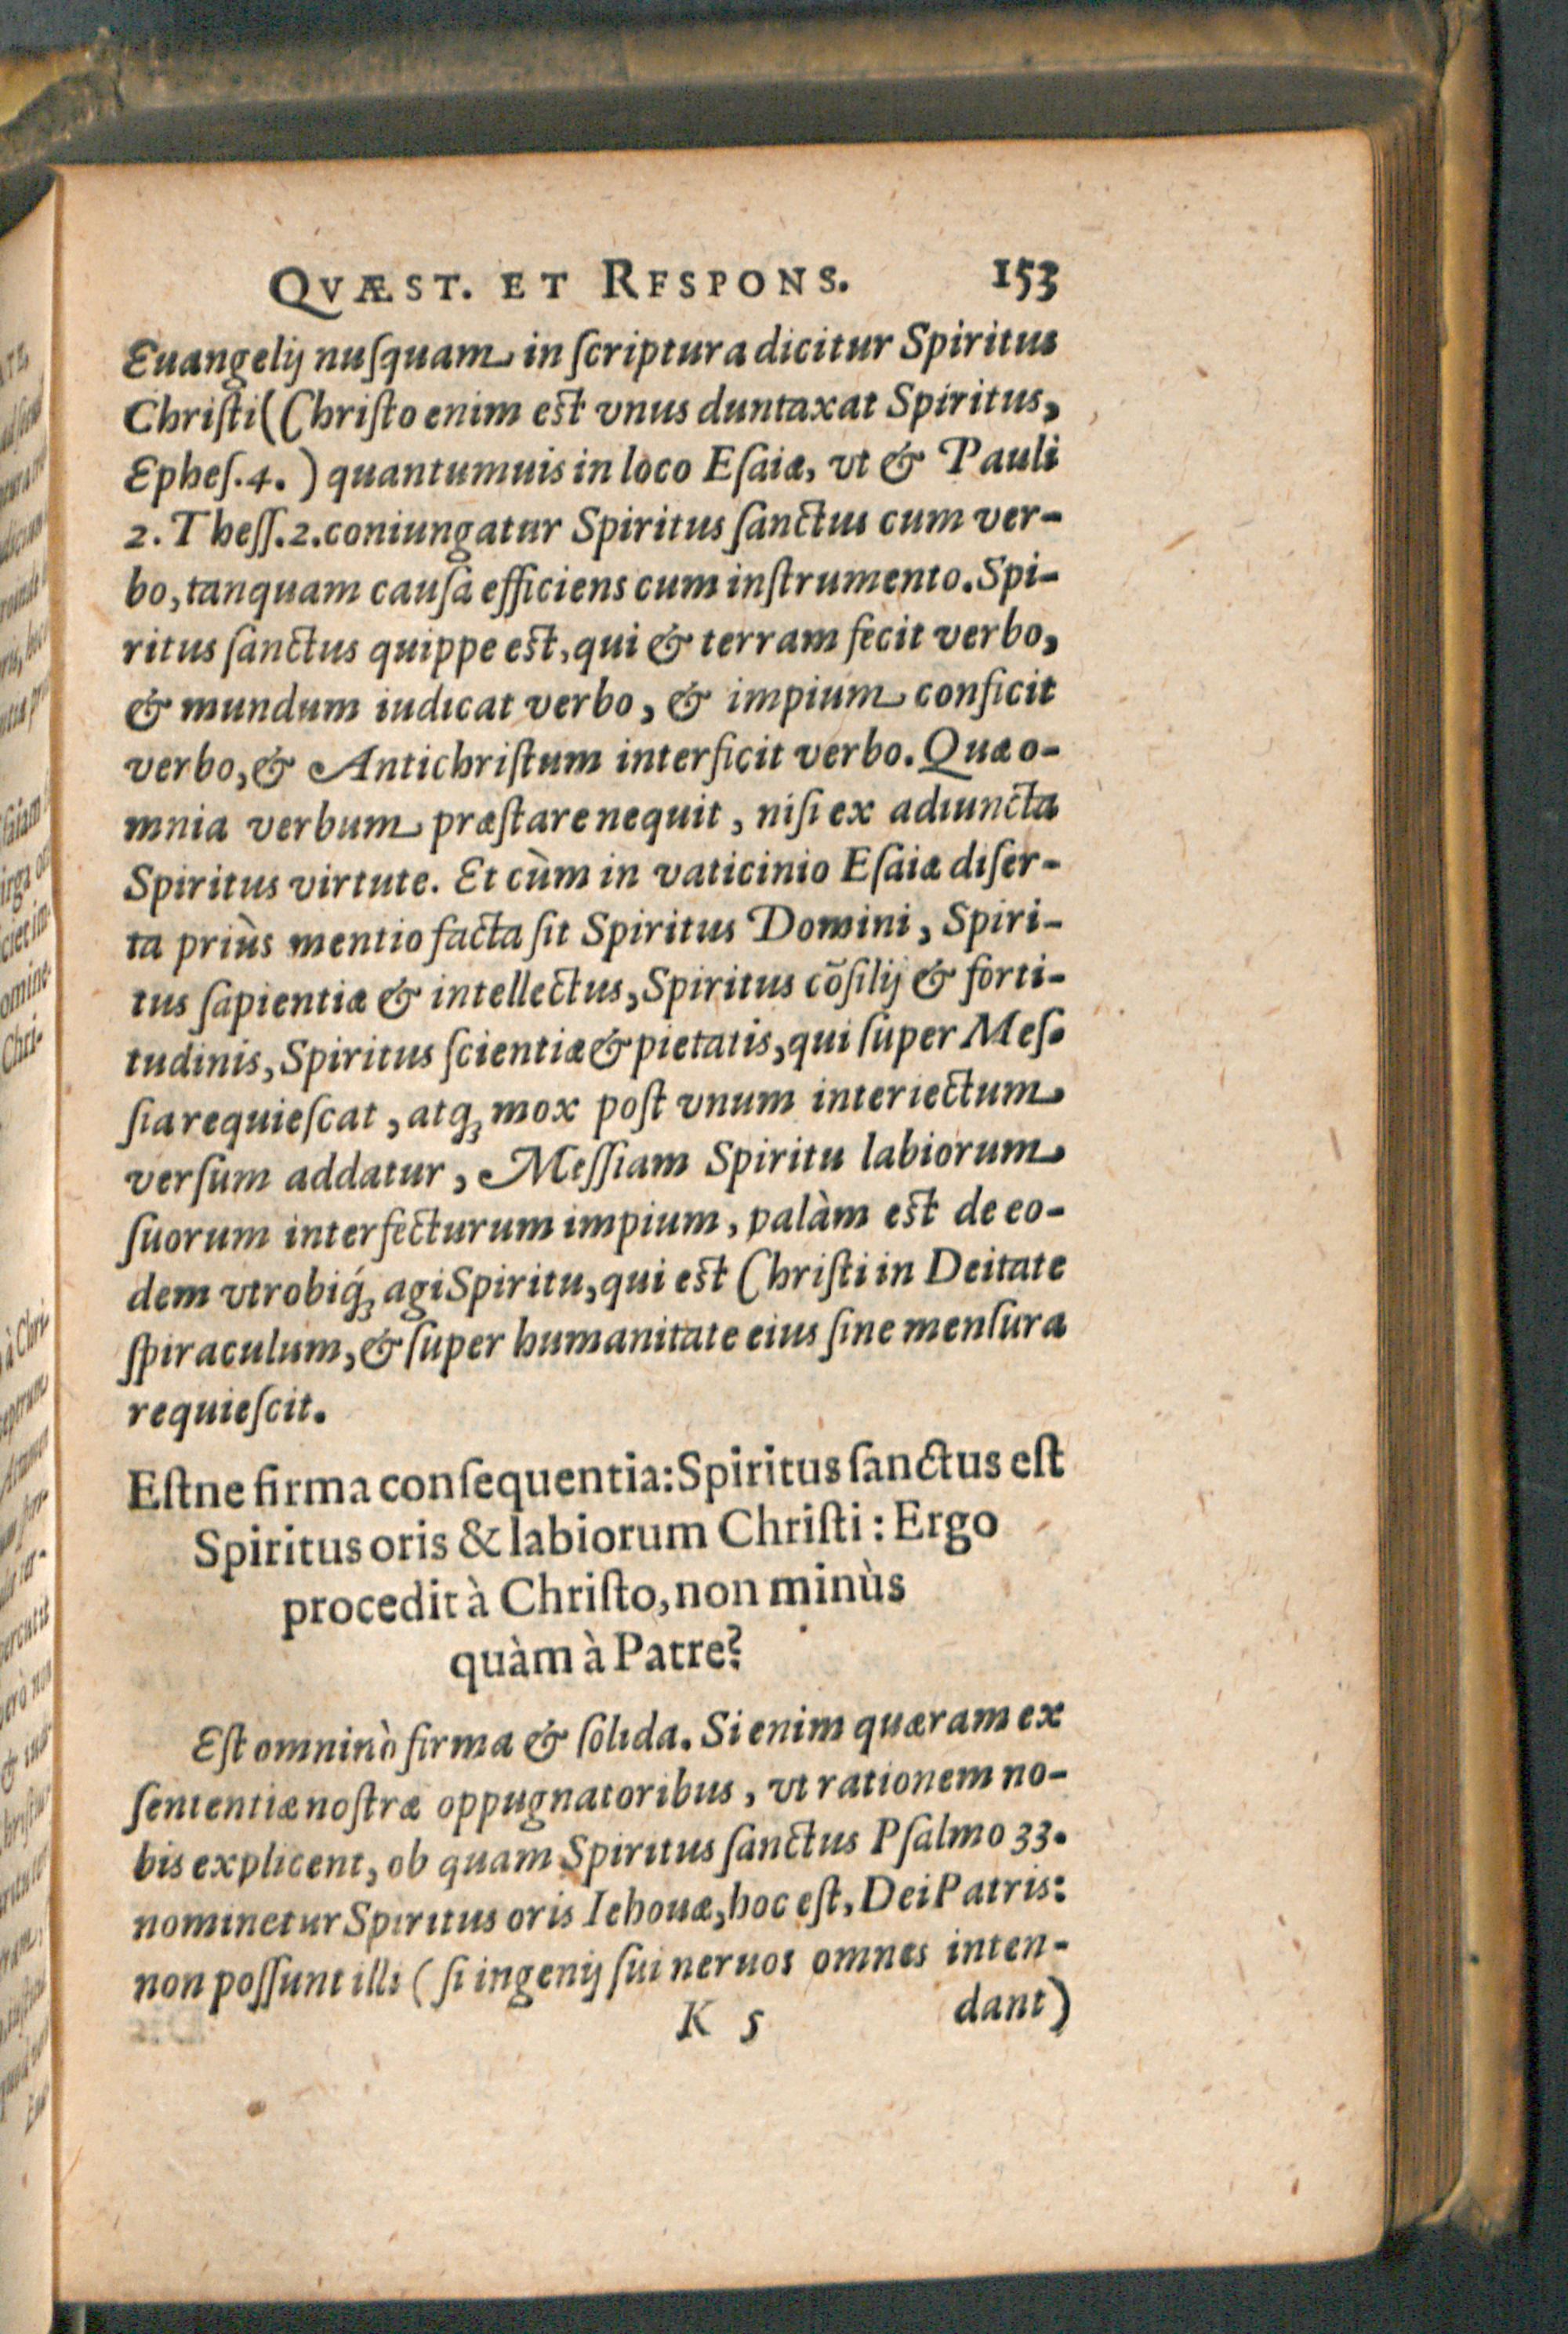 QVÆST. ET RFSPONS. 153
Euangelij nuſquam in ſcriptura dicitur Spiritus
Chriſti (Chriſto enim eſt vnus duntaxat Spiritus,
Epheſ.4.) quantumuis in loco Eſaiæ, vt & Pauli
2. Theſſ.2. coniungatur Spiritus ſanctus cum ver-
bo, tanquam cauſa efficiens cum inſtrumento. Spi-
ritus ſanctus quippe eſt, qui & terram fecit verbo,
& mundum iudicat verbo, & impium conficit
verbo, & Antichriſtum interficit verbo. Quæ o-
mnia verbum præſtare nequit, niſi ex adiuncta
Spiritus virtute. Et cùm in vaticinio Eſaiæ diſer-
ta priùs mentio facta ſit Spiritus Domini, Spiri-
tus ſapientiæ & intellectus, Spiritus cõſilij & forti-
tudinis, Spiritus ſcientiæ & pietatis, qui ſuper Meſ-
ſia requieſcat, atq́; mox poſt vnum interiectum
verſum addatur, Meſſiam Spiritu labiorum
ſuorum interfecturum impium, palàm eſt de eo-
dem vtrobiq́; agi Spiritu, qui eſt Chriſti in Deitate
ſpiraculum, & ſuper humanitate eius ſine menſura
requieſcit.
Eſtne firma conſequentia: Spiritus ſanctus eſt
Spiritus oris & labiorum Chriſti: Ergo
procedit à Chriſto, non minùs
quàm à Patre?
Eſt omninò firma & ſolida. Si enim quæram ex
ſententiæ noſtræ oppugnatoribus, vt rationem no-
bis explicent, ob quam Spiritus ſanctus Pſalmo 33.
nominetur Spiritus oris Iehouæ, hoc eſt, Dei Patris:
non poſſunt illi (ſi ingenij ſui neruos omnes inten-
K 5 dant)